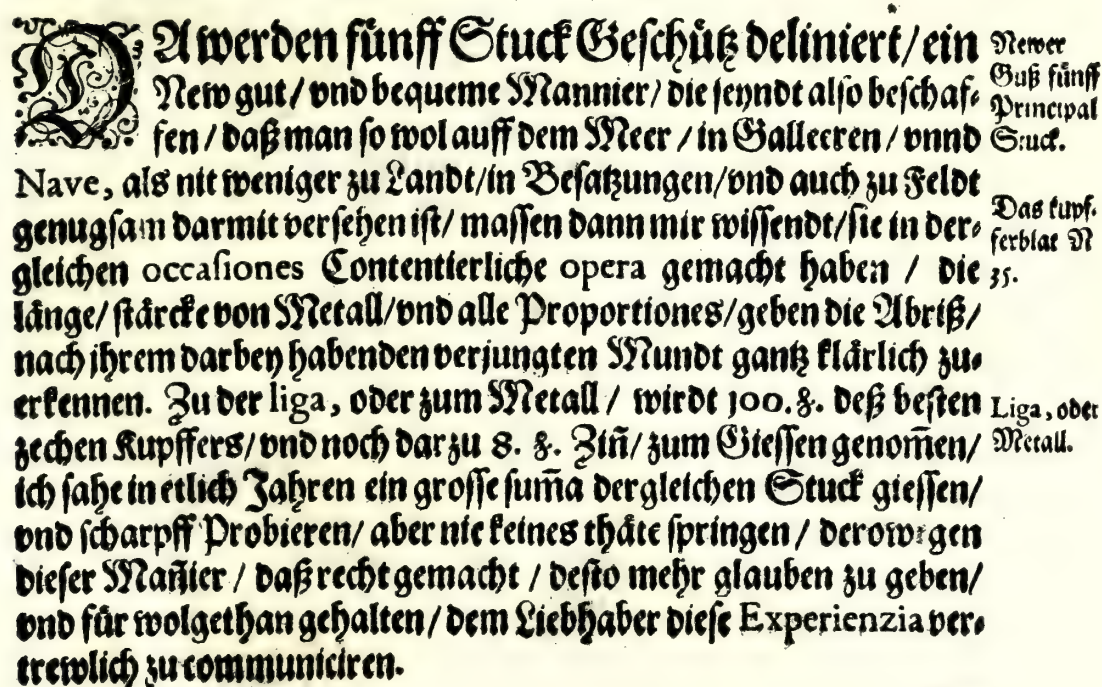 DA werden fünff Stuck Geschütz deliniert/ ein
New gut/ vnd bequeme Mannier/ die seyndt also beschaf-
fen/ daß man so wol auff dem Meer/ in Galleeren/ vnnd
Nave, als nit weniger zu Landt/ in Besatzungen/ vnd auch zu Feldt
genugsam darmit versehen ist/ massen dann mir wissendt/ sie in der-
gleichen occasiones Contentierliche opera gemacht haben/ die
länge/ stärcke von Metall/ vnd alle Proportiones/ geben die Abriß/
nach jhrem darbey habenden verjungten Mundt gantz klärlich zu-
erkennen. Zu der liga, oder zum Metall/ wirdt 100. ℔. deß besten
zechen Kupffers/ vnd noch darzu 8. ℔. Ziñ/ zum Giessen genom̃en/
ich sahe in etlich Jahren ein grosse sum̃a dergleichen Stuck giessen/
vnd scharpff Probieren/ aber nie keines thäte springen/ derowegen
dieser Mañier/ daß recht gemacht/ desto mehr glauben zu geben/
vnd für wolgethan gehalten/ dem Liebhaber diese Experienzia ver-
trewlich zu communiciren.
Newer
Guß fünff
Principal
Stuck.
Das kupf-
ferblat N
35.
Liga, oder
Metall.